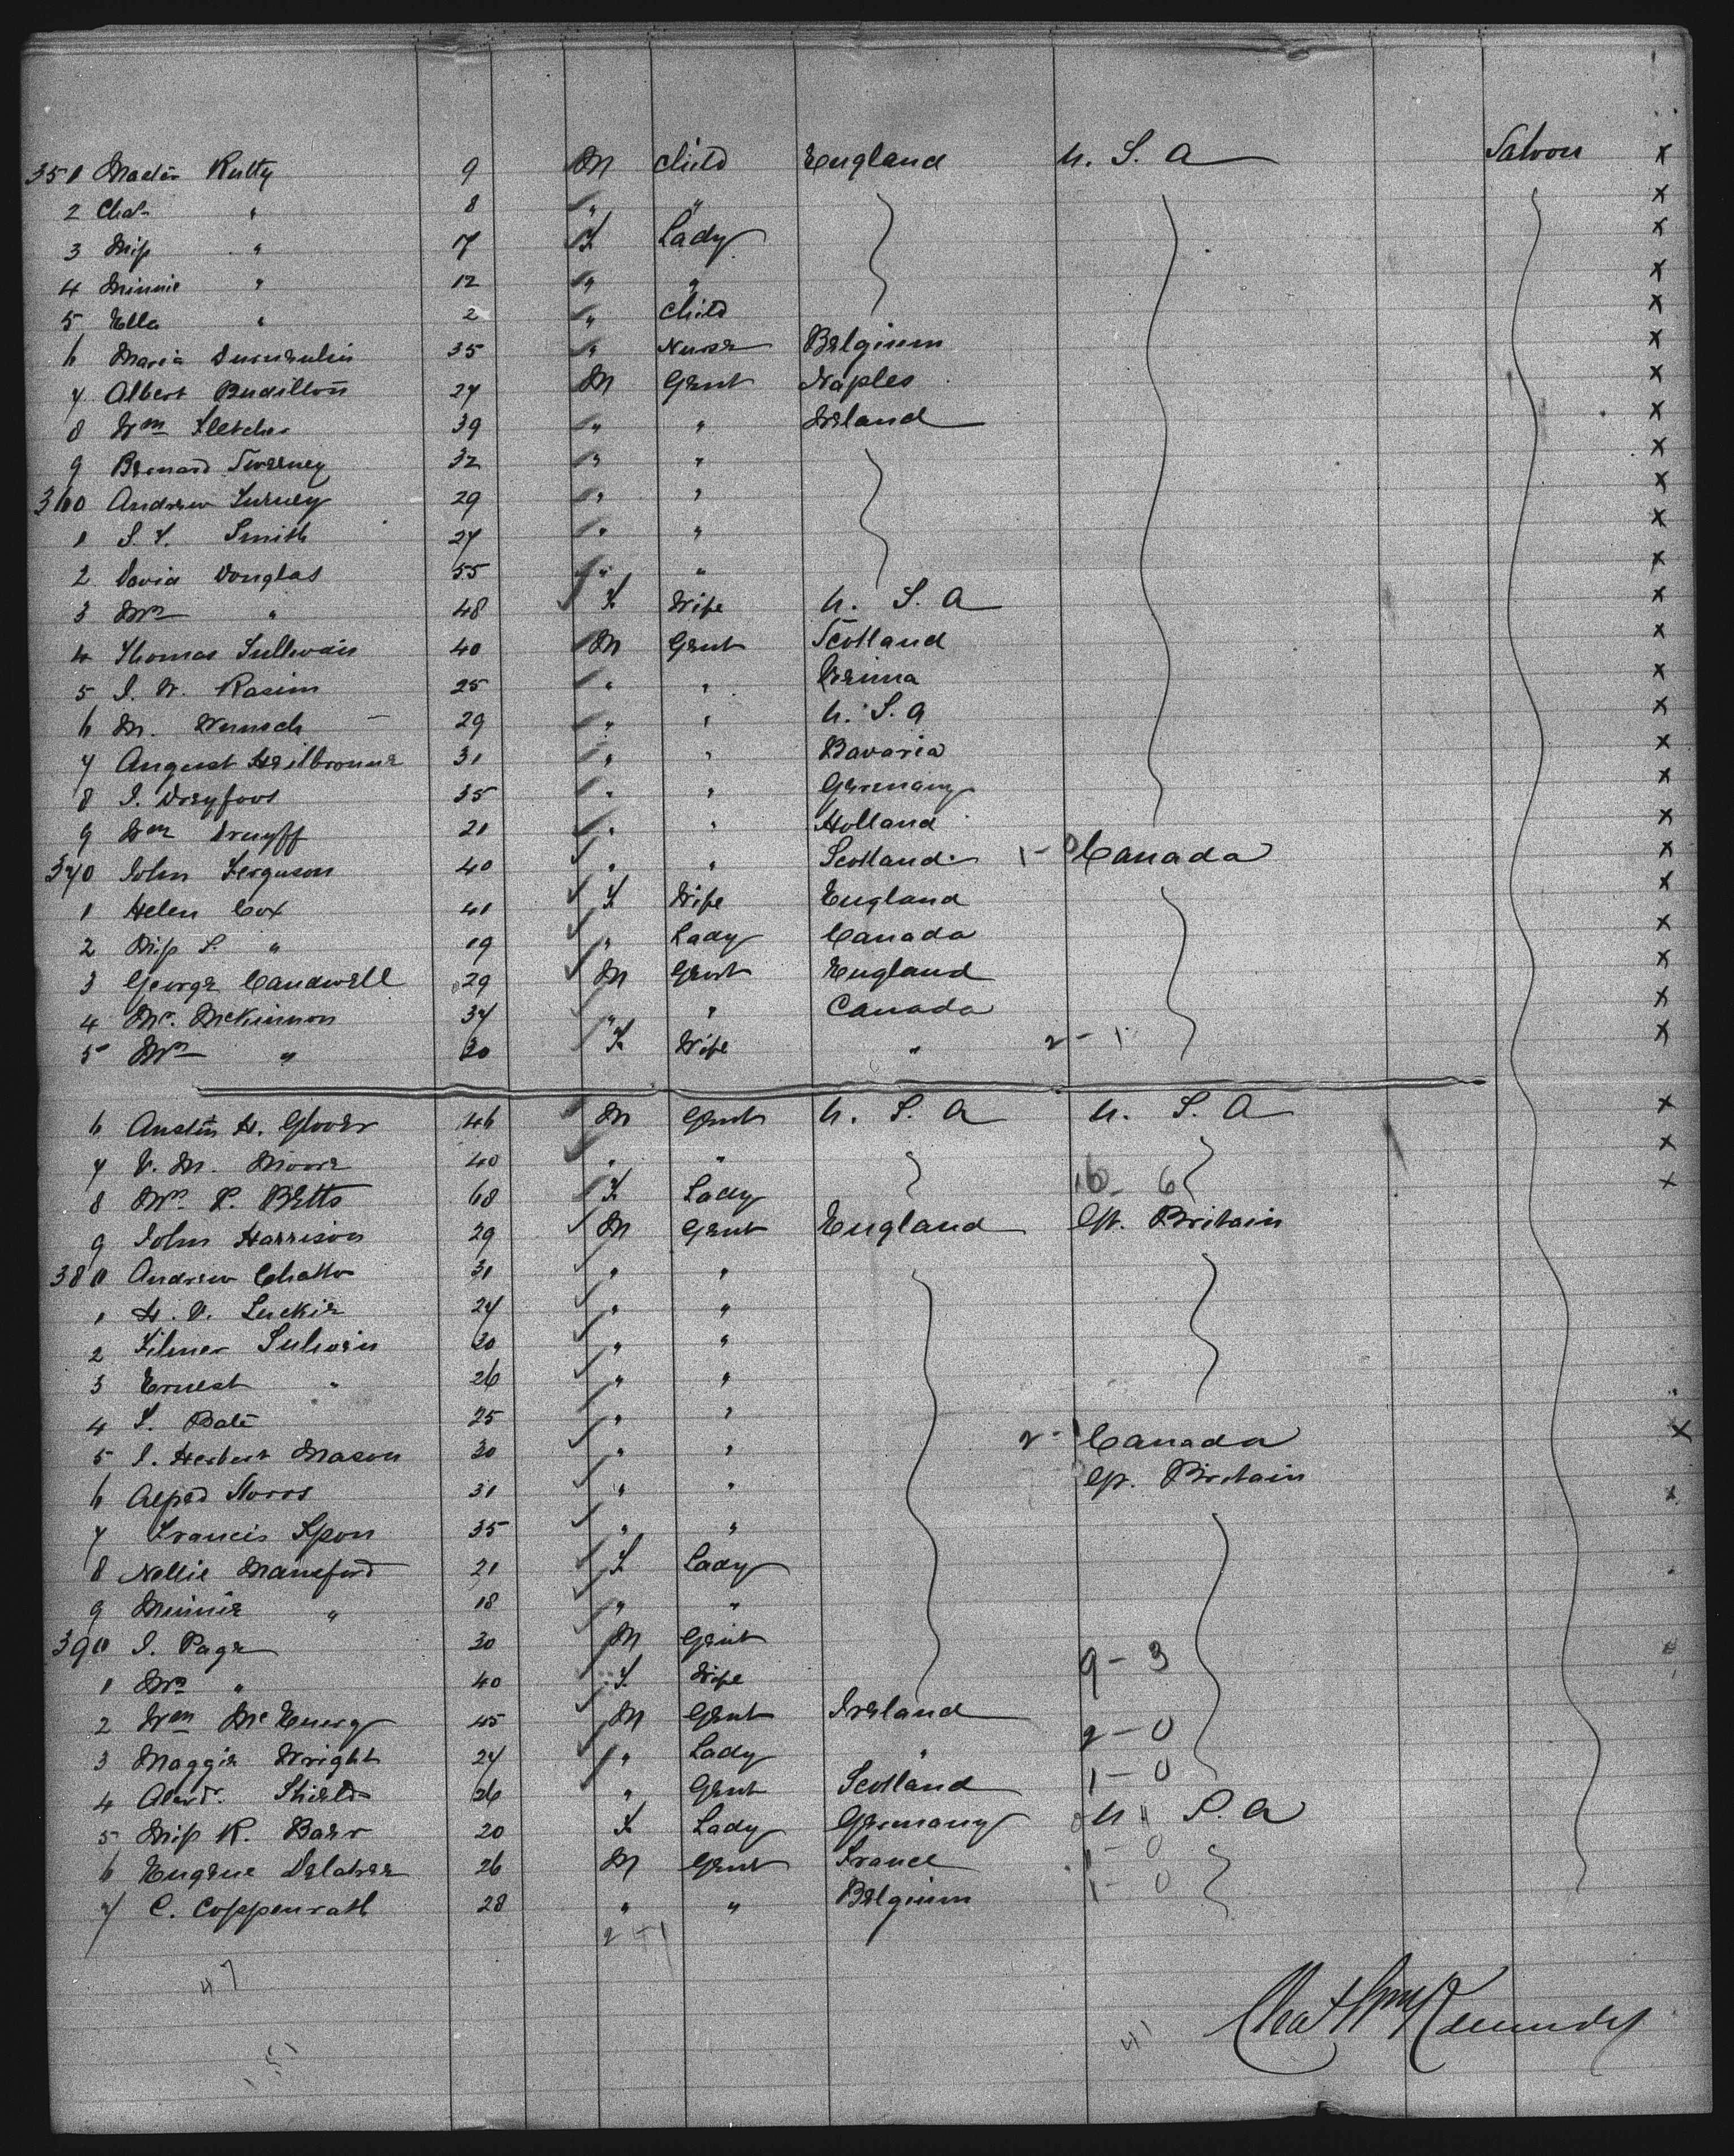 351 Master Rutty 9 M Child England U. S. A Saloon x
2 Chas " 8 " " x
3 Miss " 17 F Lady x
4 Minnie " 12 " " x
5 Ella " 2 " Child x
6 Maria 35 " Nurse Belgium x
7 Albert 27 M Gent Naples x
8 Wm Fletcher 39 " " Ireland x
9 Bernard Sweeney 32 " " x
360 Andrew Furney 29 " " x
1 S. F. Smith 27 " " x
2 David Douglas 55 " " x
3 Mrs " 48 F Wife U. S. A x
4 Thomas Sullivan 40 M Gent Scotland x
5 I. W. Rasim 25 " " x
6 M. Wunsch 29 " " U. S. A x
7 August Heilbronner 31 " " Bavaria x
8 I. Dreyfoos 35 " " Germany x
9 Wm Druyff 21 " " Holland x
370 John Ferguson 40 " " Scotland 1 - 0 Canada x
1 Helen Cox 41 F Wife England x
2 Miss S. " 19 " Lady Canada x
3 George Caudwell 29 M Gent England x
4 Mr. McKinnon 37 " " Canada x
5 Mrs " 30 F Wife " 2 - 1 x
6 Austin H. Glover 46 M Gent U. S. A U. S. A x
7 V. M. Moore 40 " " x
8 Mrs P. Betts 68 F Lady 16 - 6 x
9 John Harrison 29 M Gent England Gt. Britain
380 Andrew Chatto 31 " "
1 H. V. Luckie 27 " "
2 Filmer Sulivan 30 " "
3 Ernest " 26 " "
4 S. Bate 25 " "
5 I. Herbert Mason 30 " " 2 - 1 Canada x
6 Alfred Storrs 31 " " Gt. Britain x
7 Francis Spon 35 " "
8 Nellie Mansford 21 F Lady
9 Minnie " 18 " "
390 I. Page 30 M Gent
1 Mrs " 40 F Wife 9 - 3
2 Wm McEnery 45 M Gent Ireland
3 Maggie Wright 27 " Lady " 2 - 0
4 Alexdr. Shields 26 " Gent Scotland 1 - 0
5 Miss K. Baer 20 F Lady Germany U. S. A
6 Eugene Delatree 26 M Gent France 1 - 0
7 C. Coppenrath 28 " " Belgium 1 - 0
2 + 1
47
41
151